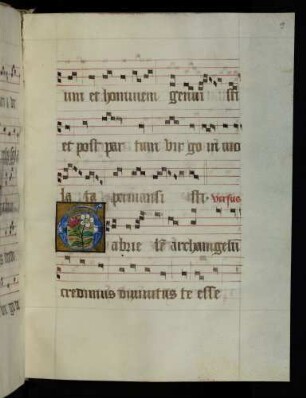 um et hominem genui sti
et post par tum vir go in vio
la ta permansi sti. versus
Gabrie lem archangelū
credimus divinitus te esse